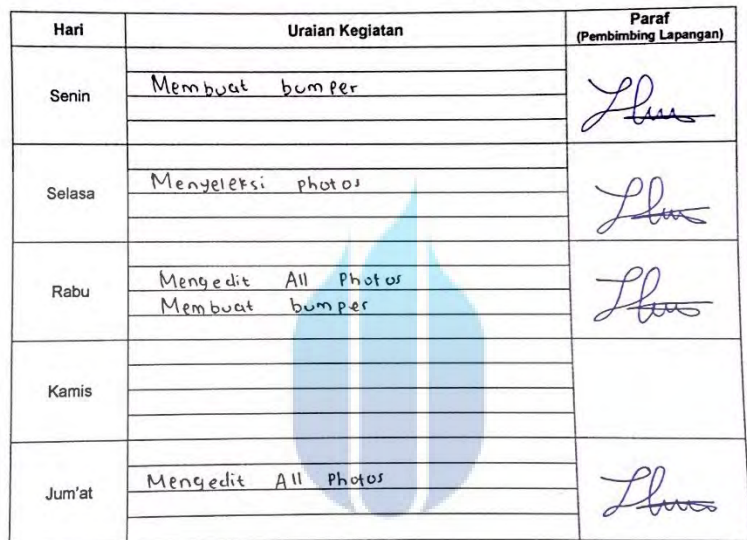 Hari Uraian Kegiatan Paraf
(Pembimbing Lapangan)
Senin Membuat bumper
Selasa Menyeleksi photos
Rabu Mengedit All Photos
Membuat bumper
Kamis
Jum'at Mengedit All Photos